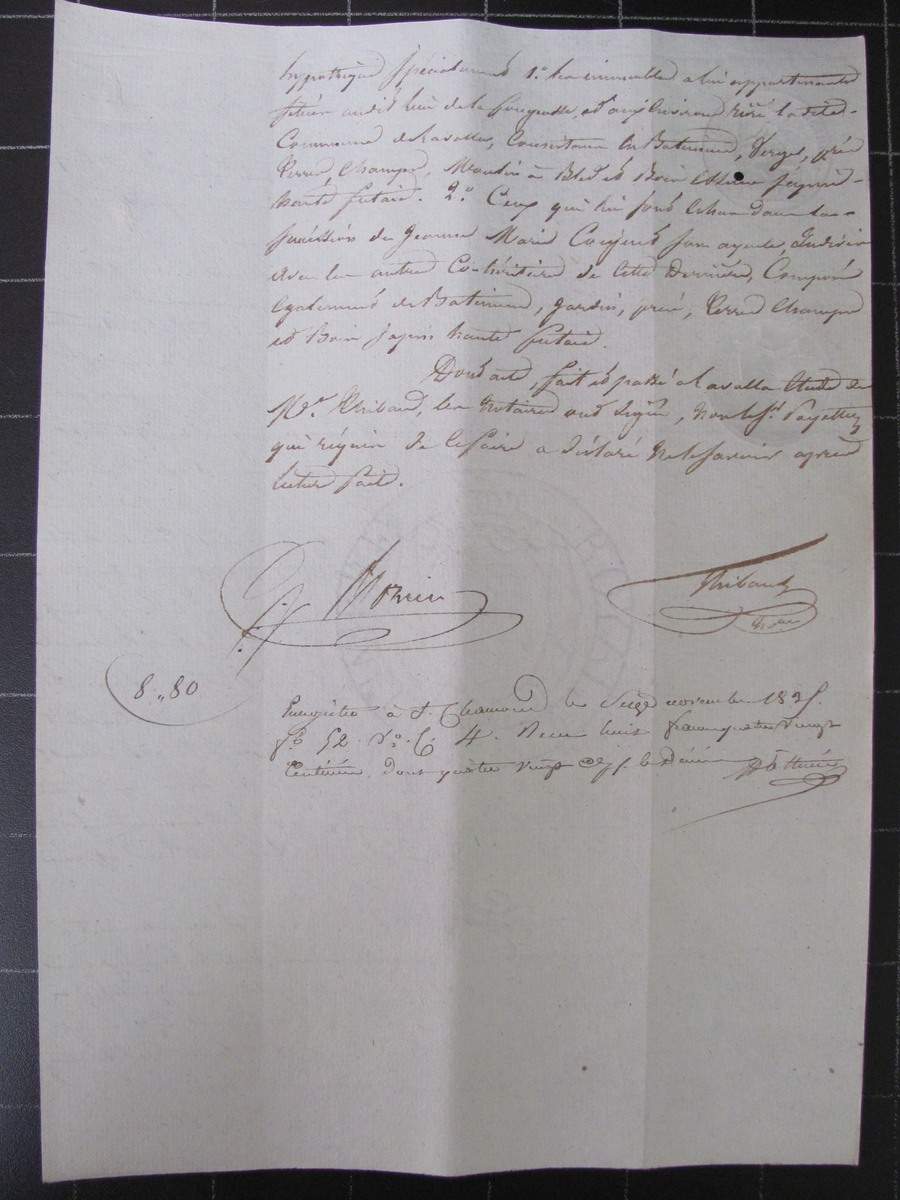 hypothéqué spécialement 1.° les immeubles a lui appartenants
situés audit lieu de la et aux Environs rière la dite
Commune de Lavalla, Consistant En Batiments, Verger, prés
Terres, Champs, Moulin à Bled et Bois Essence Sapin
haute futaie. 2.° Ceux qui lui sont Echus dans la
succession de Jeanne Marie son ayeule, Indivis
avec les autres Co-héritiers de Cette Dernière, Composés
Egalement de Batiments, jardin, prés, Terres Champs
et Bois sapin haute futaie.
Dont acte, fait et passé a Lavalla Etude de
M.e Thibaud, les Notaires ont Signé, non led.t
qui requis de le faire a déclaré ne le savoir après
lecture faite.
Thibaud
8 " 80
Enregistré à S. Chamond le novembre 1825.
f.o 52. v.o C. 4. Recu huit francs quatre vingt
Centimes, dont quatre vingt Cs p.r le Décime